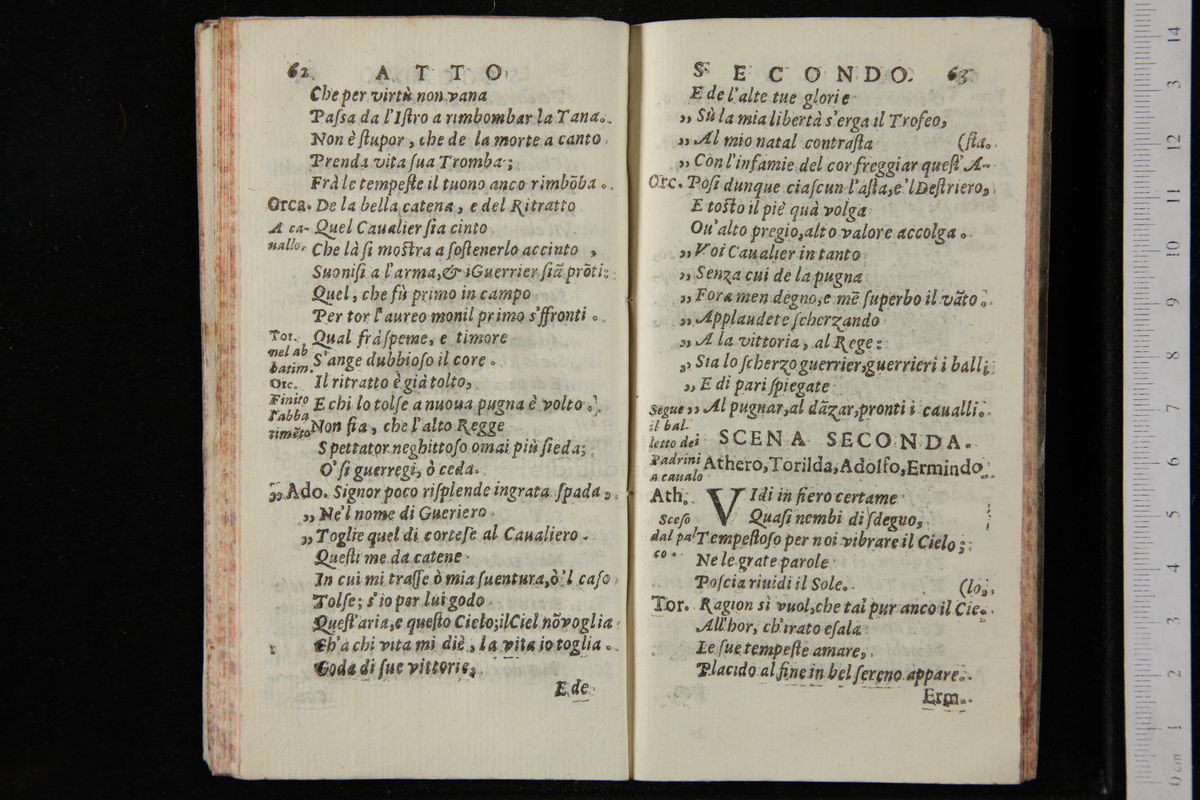 62. ATTO
Che per virtù non vana
Paſsa da l'Iſtro a rimbombar la Tana.
Non è ſtupor, che de la morte a canto
Prenda vita ſua Tromba;
Frà le tempeſte il tuono anco rimbõba.
Orca. De la bella catena, e del Ritratto
A ca- Quel Caualier ſia cinto
uallo. Che là ſi moſtra a ſoſtenerlo accinto,
Suoniſi a l'arma, & i Guerrier ſiã prõti:
Quel, che fù primo in campo
Per tor l'aureo monil primo s'ffronti.
Tor. Qual frà ſpeme, e timore
nel ab S'ange dubbioſo il core.
batim.
Orc. Il ritratto è già tolto,
Finito E chi lo tolſe a nuoua pugna è volto.
l'abba
timẽto Non ſia, che l'alto Regge
Spettator neghittoſo omai più ſieda;
O' ſi guerregi, ò ceda.
„ Ado. Signor poco riſplende ingrata ſpada,
„ Ne'l nome di Gueriero
„ Toglie quel di corteſe al Caualiero.
Queſti me da catene
In cui mi traſſe ò mia ſuentura, ò'l caſo
Tolſe; s'io per lui godo
Queſt'aria, e queſto Cielo; il Ciel nõ voglia
Ch'a chi vita mi diè, la vita io toglia.
Goda di ſue vittorie,
E de
SECONDO. 63
E de l'alte tue glorie
„ Sù la mia libertà s'erga il Trofeo,
„ Al mio natal contraſta (ſta.
„ Con l'infamie del cor freggiar queſt' A-
Orc. Poſi dunque ciaſcun l'aſta, e'l Deſtriero,
E toſto il piè quà volga
Ou'alto pregio, alto valore accolga.
„ Voi Caualier in tanto
„ Senza cui de la pugna
„ Fora men degno, e mẽ ſuperbo il vãto.
„ Applaudete ſcherzando
„ A la vittoria, al Rege:
„ Sia lo ſcherzo guerrier, guerrieri i balli
„ E di pari ſpiegate
Segue „ Al pugnar, al dãzar, pronti i caualli.
il bal-
letto dei SCENA SECONDA.
Padrini Athero, Torilda, Adolfo, Ermindo
a caualo
Ath. VIdi in fiero certame
Sceſo Quaſi nembi di ſdegno,
dal pal Tempeſtoſo per noi vibrare il Cielo;
co. Ne le grate parole
Poſcia riuidi il Sole. (lo,
Tor. Ragion sì vuol, che tal pur anco il Cie.
All'hor, ch'irato eſala
Le ſue tempeſte amare,
Placido al fine in bel ſereno appare.
Erm.
14
13
12
11
10
9
8
7
6
5
4
3
2
1
0 cm